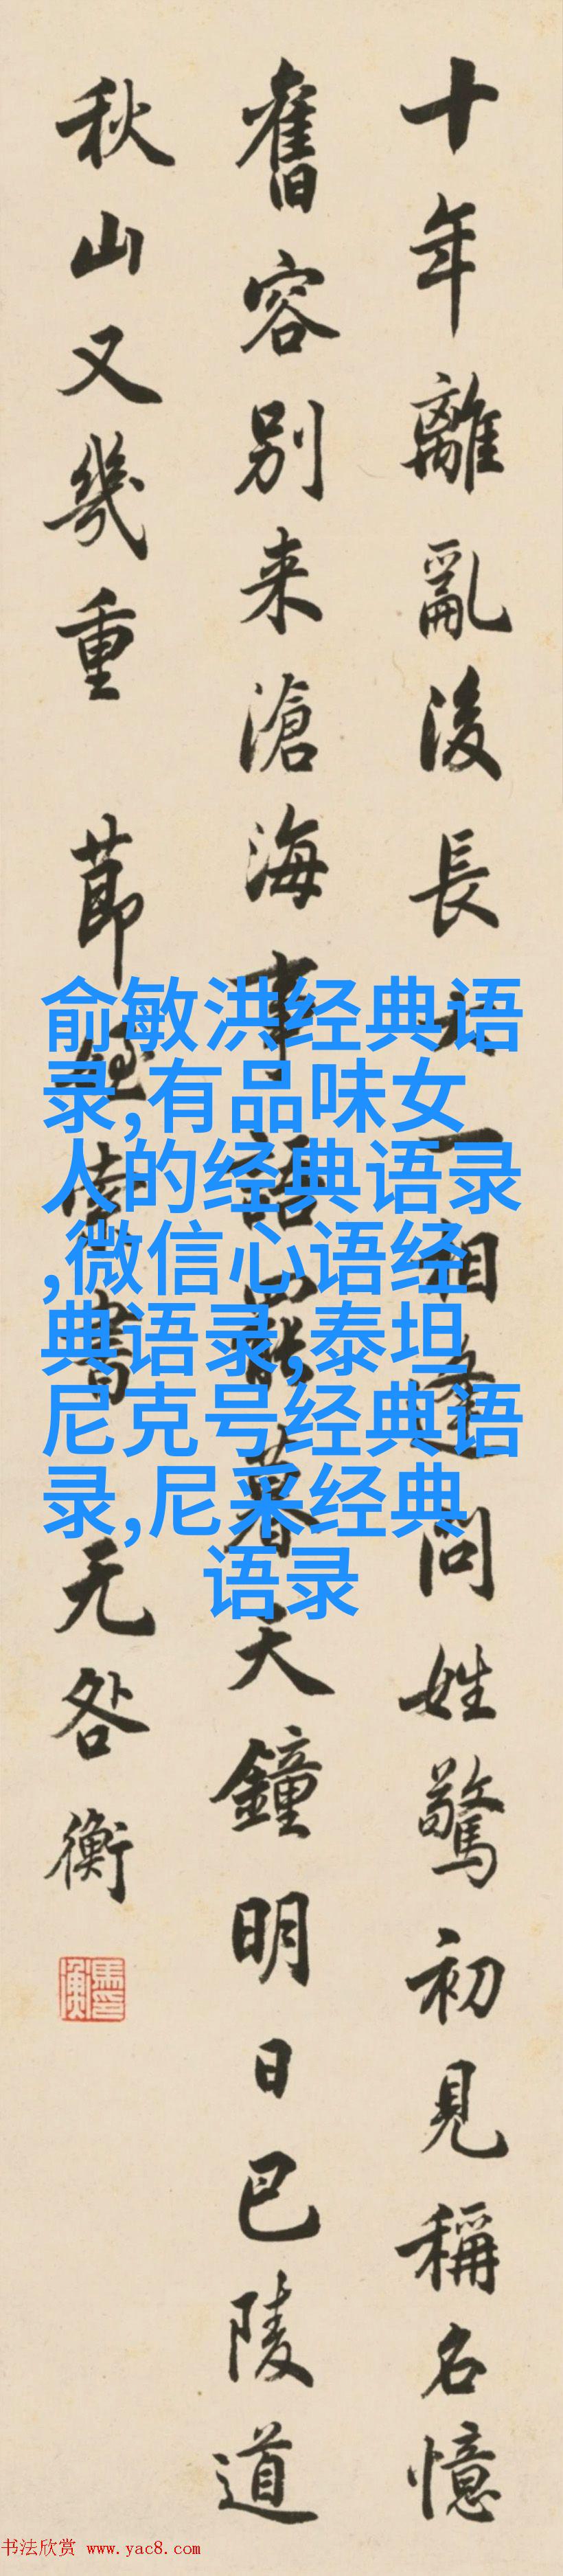 十年離亂後長大一相逢問姓驚初見稱名憶
舊容別来滄海事語罷暮天鐘明日巴陵道
秋山又幾重 節 書 无咎衡
馬衡印
俞敏洪经典语
录,有品味女
人的经典语录
,微信心语经
典语录,泰坦
尼克号经典语
录,尼采经典
语录
书法欣赏 www.yac8.com